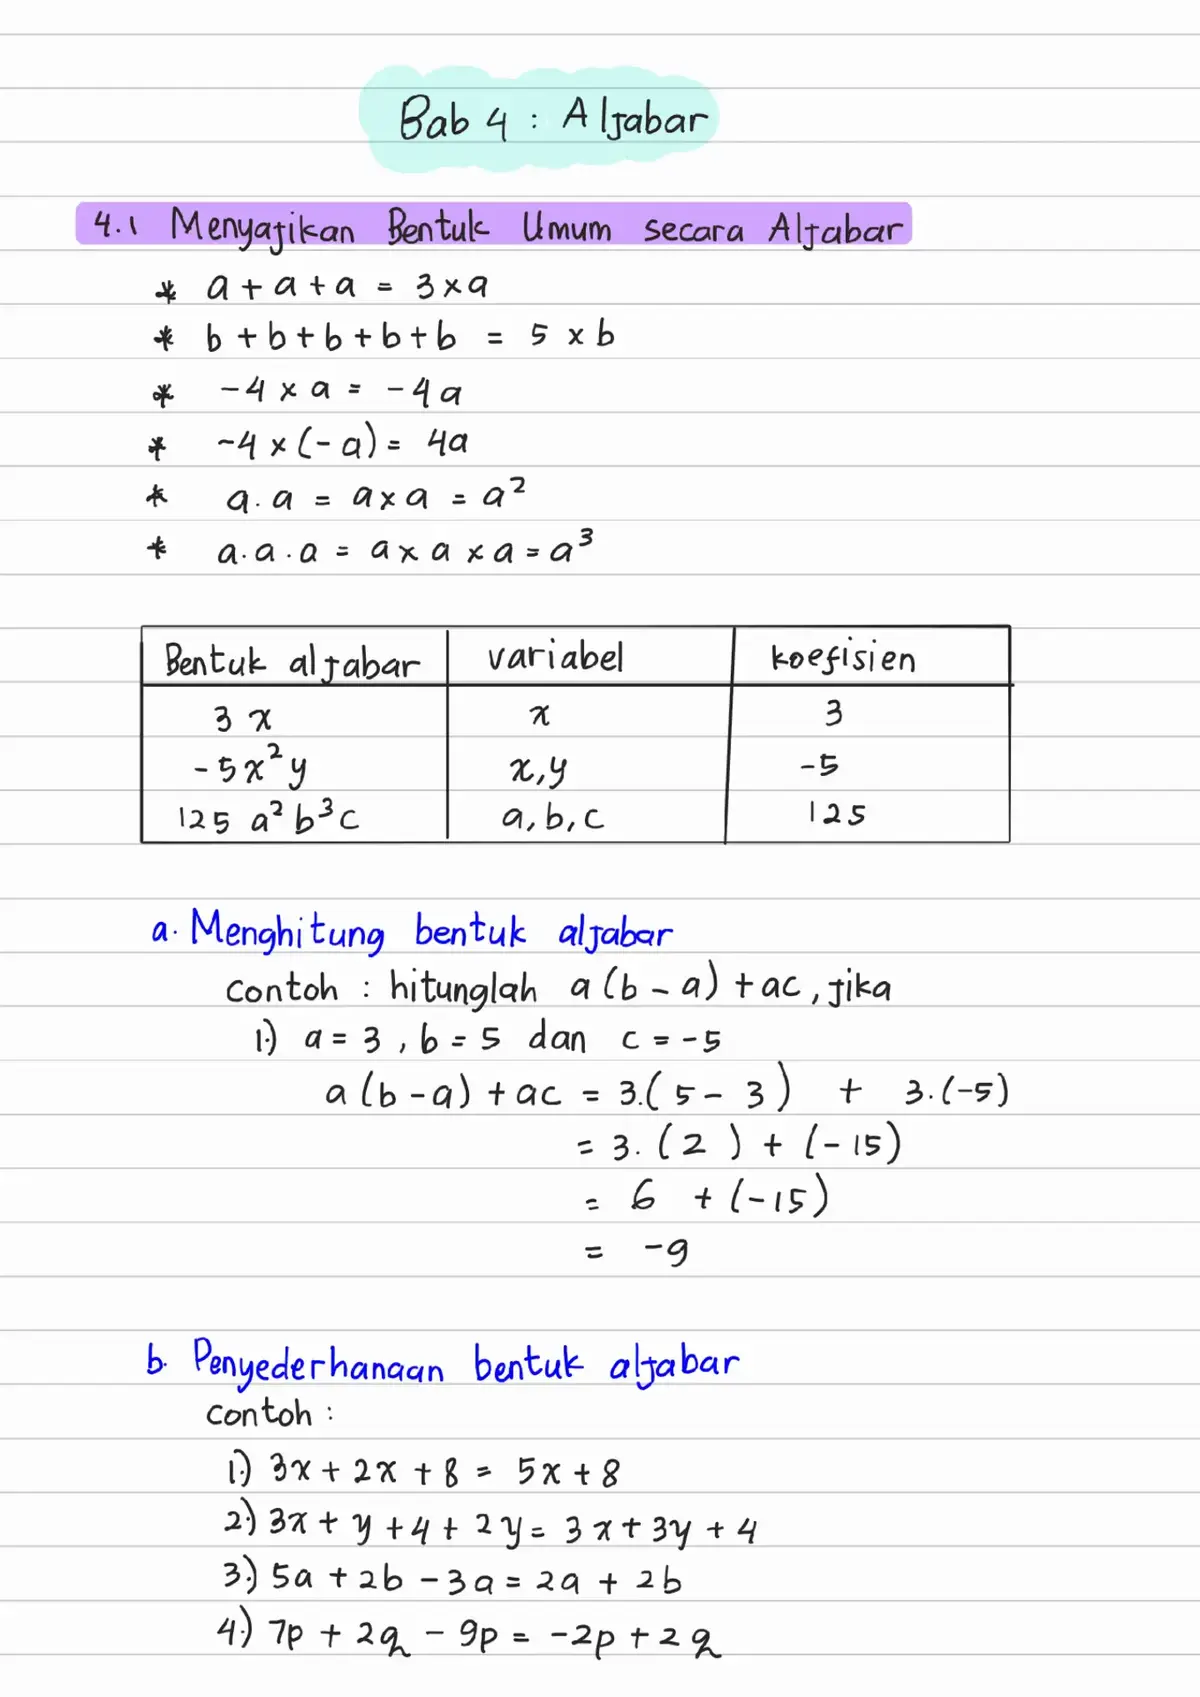 Bab 4 : Aljabar
4.1 Menyajikan Bentuk Umum secara Aljabar
* a + a + a = 3 × a
* b + b + b + b + b = 5 × b
* -4 × a = -4a
* -4 × (-a) = 4a
* a . a = a × a = a²
* a . a . a = a × a × a = a³
Bentuk aljabar variabel koefisien
3x x 3
-5x²y x,y -5
125 a²b³c a,b,c 125
a. Menghitung bentuk aljabar
contoh : hitunglah a(b - a) + ac, jika
1.) a = 3 , b = 5 dan c = -5
a(b - a) + ac = 3.(5 - 3) + 3.(-5)
= 3.(2) + (-15)
= 6 + (-15)
= -9
b. Penyederhanaan bentuk aljabar
contoh :
1.) 3x + 2x + 8 = 5x + 8
2.) 3x + y + 4 + 2y = 3x + 3y + 4
3.) 5a + 2b - 3a = 2a + 2b
4.) 7p + 2q - 9p = -2p + 2q